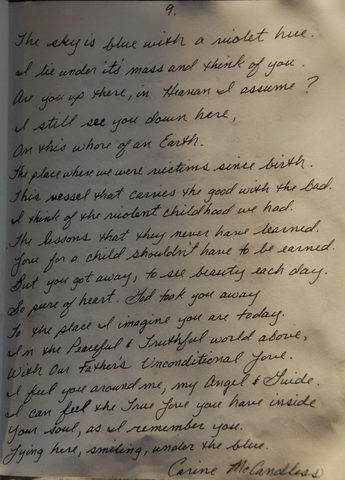 9.
The sky is blue with a violet hue.
I lie under it's mass and think of you.
Are you up there, in Heaven I assume?
I still see you down here,
On this whore of an Earth.
The place where we were victims since birth.
This vessel that carries the good with the bad.
I think of the violent childhood we had.
The lessons that they never have learned.
Love for a child shouldn't have to be earned.
But you got away, to see beauty each day.
So pure of heart. God took you away
To the place I imagine you are today.
In the Peaceful & Truthful world above,
With Our Father's Unconditional Love.
I feel you around me, my Angel & Guide.
I can feel the True Love you have inside
Your soul, as I remember you.
Lying here, smiling, under the blue.
Carine McCandless